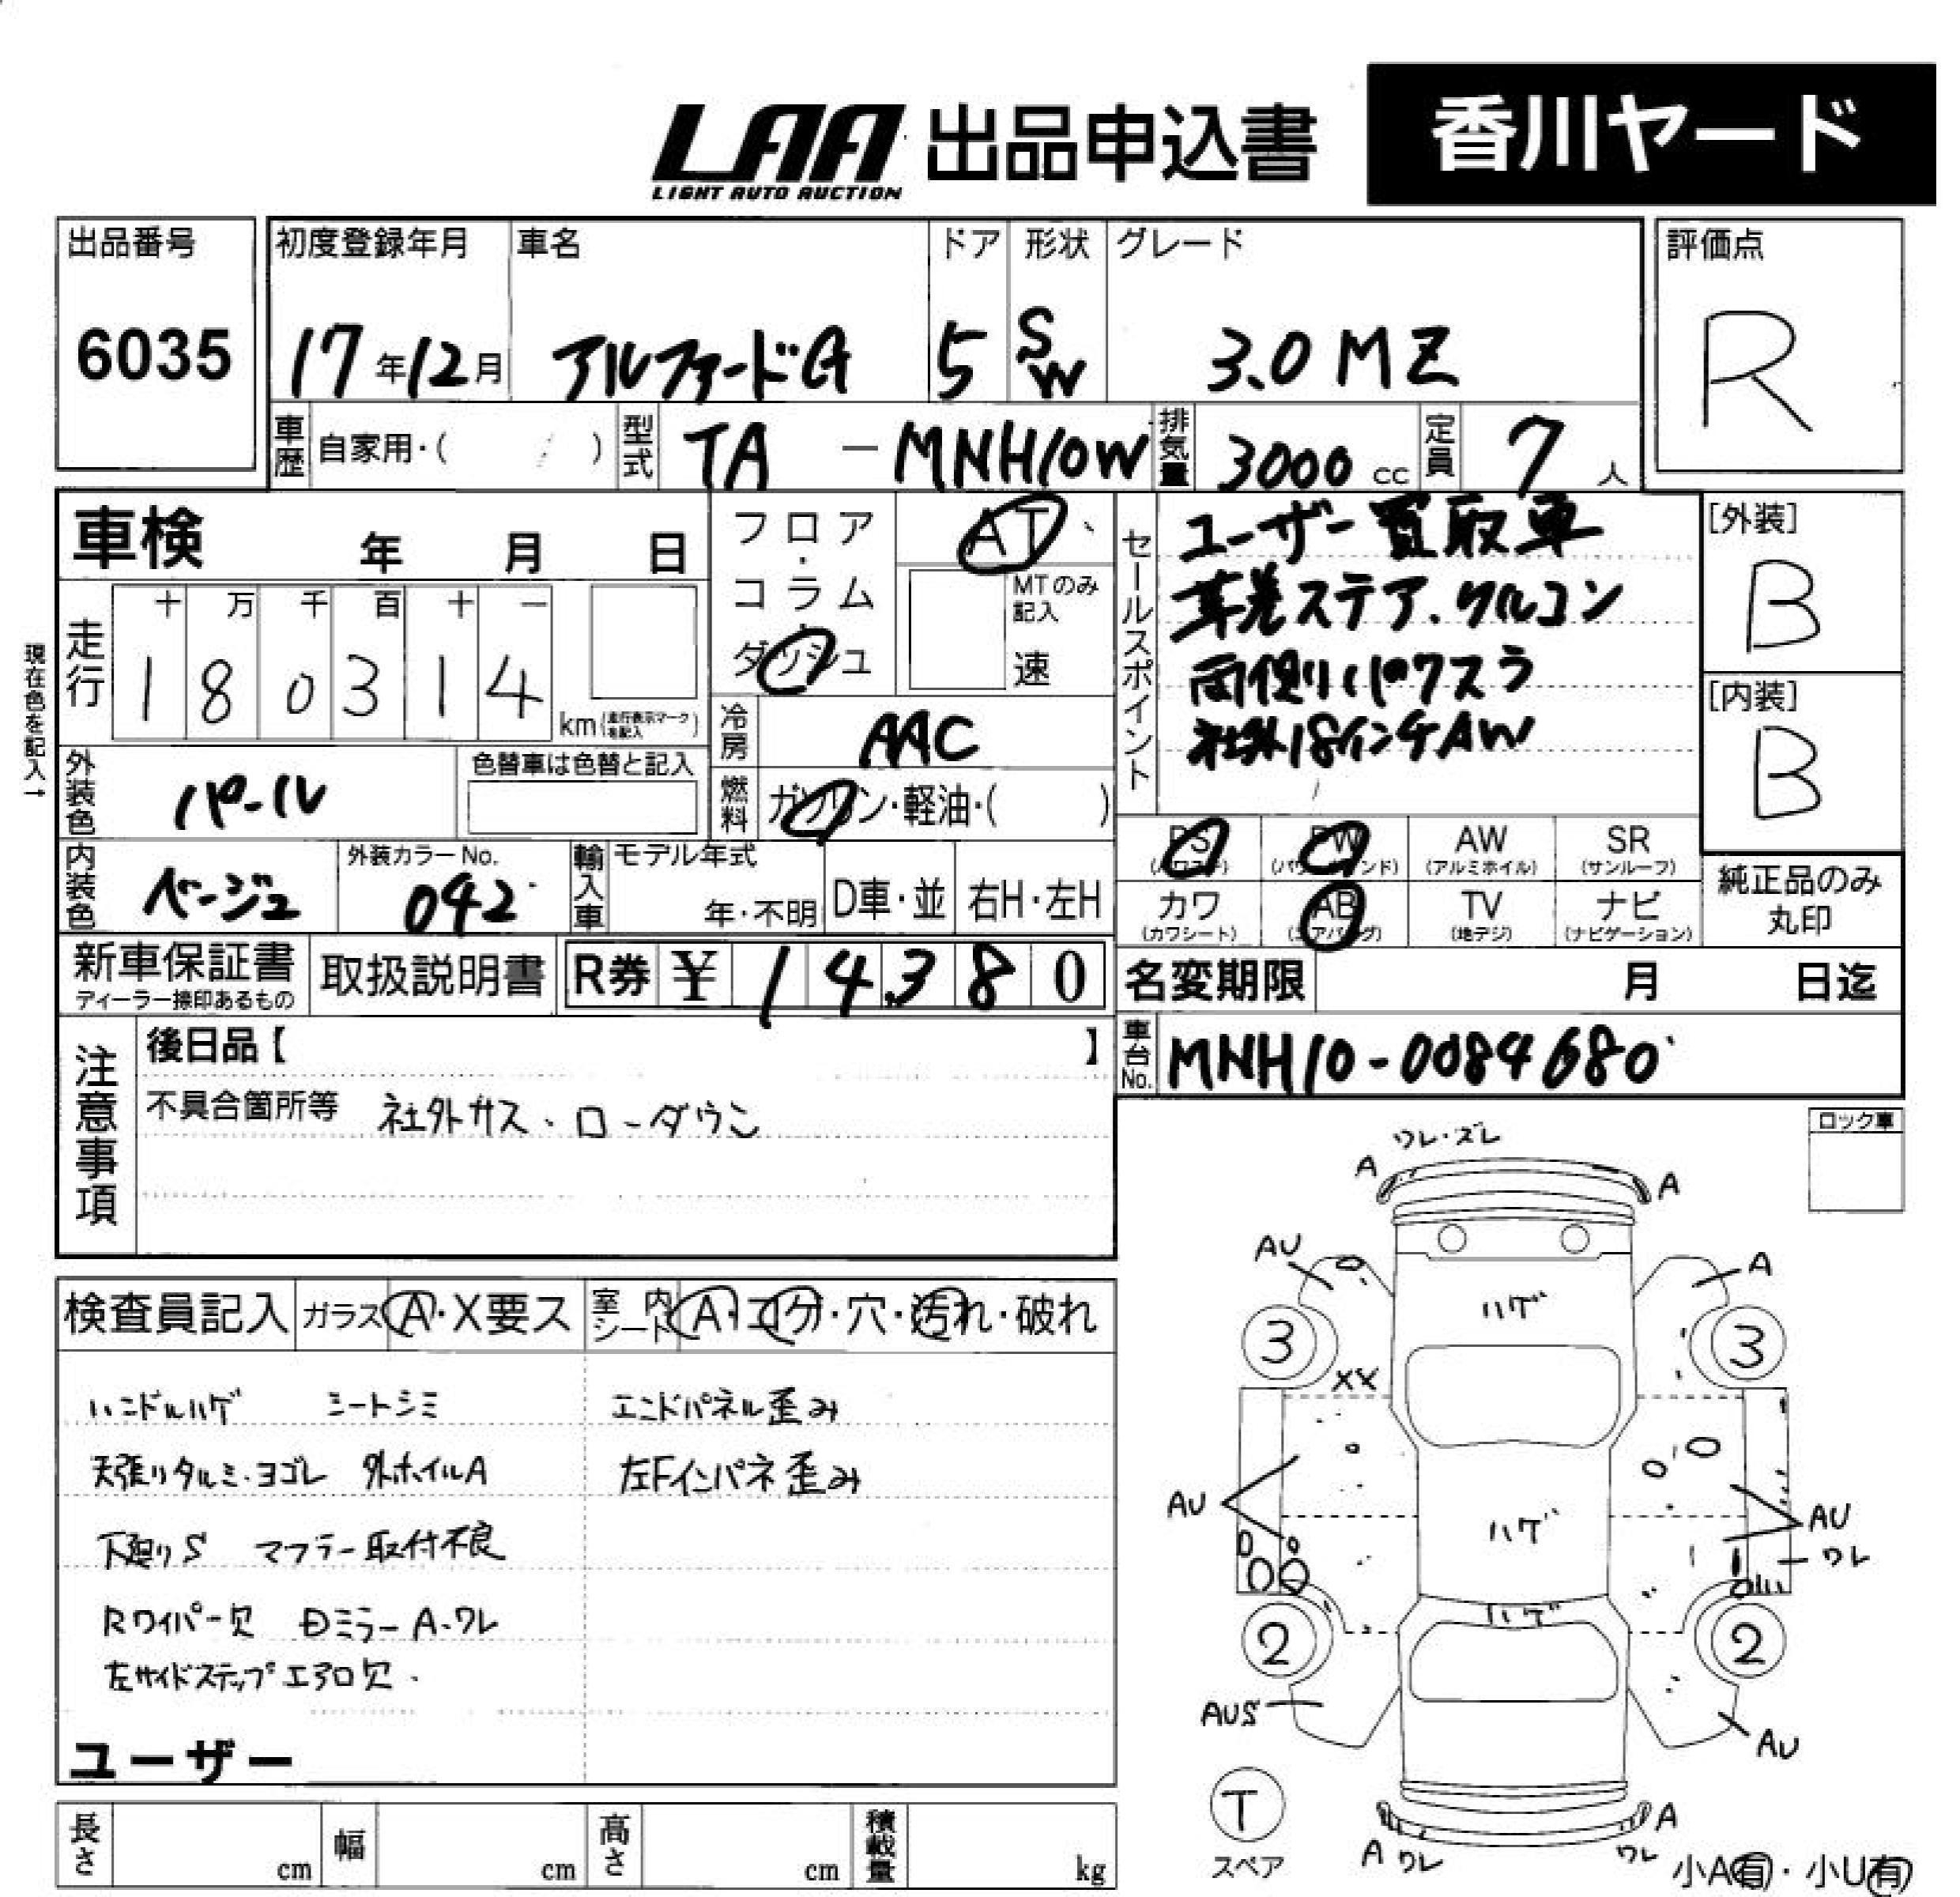 LAA 出品申込書 香川ヤード
LIGHT AUTO AUCTION
出品番号 初度登録年月 車名 ドア 形状 グレード 評価点
6035 17年12月 アルファードG 5 SW 3.0 MZ R
車歴 自家用・( ) 型式 TA - MNH10W 排気量 3000 cc 定員 7 人
車検 年 月 日
フロア・コラム・ダッシュ AT
MTのみ記入 速
セールスポイント
ユーザー買取車
革巻ステア.クルコン
両側パワスラ
社外18インチAW
[外装] B
[内装] B
現在色を記入→
走行 十 万 千 百 十 一
1 8 0 3 1 4 km(走行表示マークを記入)
冷房 AAC
外装色 パール 色替車は色替と記入
燃料 ガソリン・軽油・( )
PS (パワステ) PW (パワーウインド) AW (アルミホイル) SR (サンルーフ)
カワ (カワシート) AB (エアバッグ) TV (地デジ) ナビ (ナビゲーション)
純正品のみ丸印
内装色 ベージュ 外装カラーNo. 042 輸入車 モデル年式 年・不明 D車・並 右H・左H
新車保証書 ディーラー捺印あるもの 取扱説明書 R券 ¥ 14380
名変期限 月 日迄
車台No. MNH10-0084680
注意事項
後日品【 】
不具合箇所等 社外ガス、ローダウン
ロック車
検査員記入 ガラス A・X要ス 室内シート A・コゲ・穴・汚れ・破れ
ハンドルハゲ シートシミ エンドパネル歪み
天張りタルミ・ヨゴレ 外ホイルA 左Fインパネ歪み
下廻りS マフラー取付不良
Rワイパー欠 Dミラー A・ワレ
左サイドステップエアロ欠
ユーザー
ワレ・ズレ
A A
AU A
ハゲ
3 3
XX
AU ハゲ AU
ワレ
ハゲ
2 2
AUS AU
T
スペア
A ワレ A ワレ
小A有・小U有
長さ cm 幅 cm 高さ cm 積載量 kg